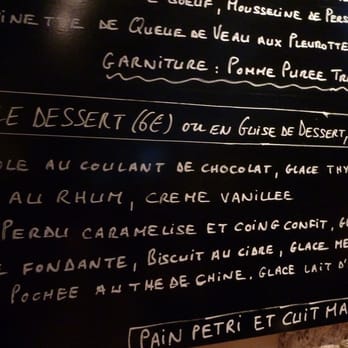 BOEUF, MOUSSELINE DE PERS
INETTE DE QUEUE DE VEAU AUX PLEUROTTE
GARNITURE : POMME PUREE TR
LE DESSERT (6€) OU EN GUISE DE DESSERT,
OLE AU COULANT DE CHOCOLAT, GLACE THY
AU RHUM, CREME VANILLEE
PERDU CARAMELISE ET COING CONFIT, G
FONDANTE, BISCUIT AU CIDRE, GLACE ME
POCHEE AU THE DE CHINE. GLACE LAIT D'
PAIN PETRI ET CUIT MA